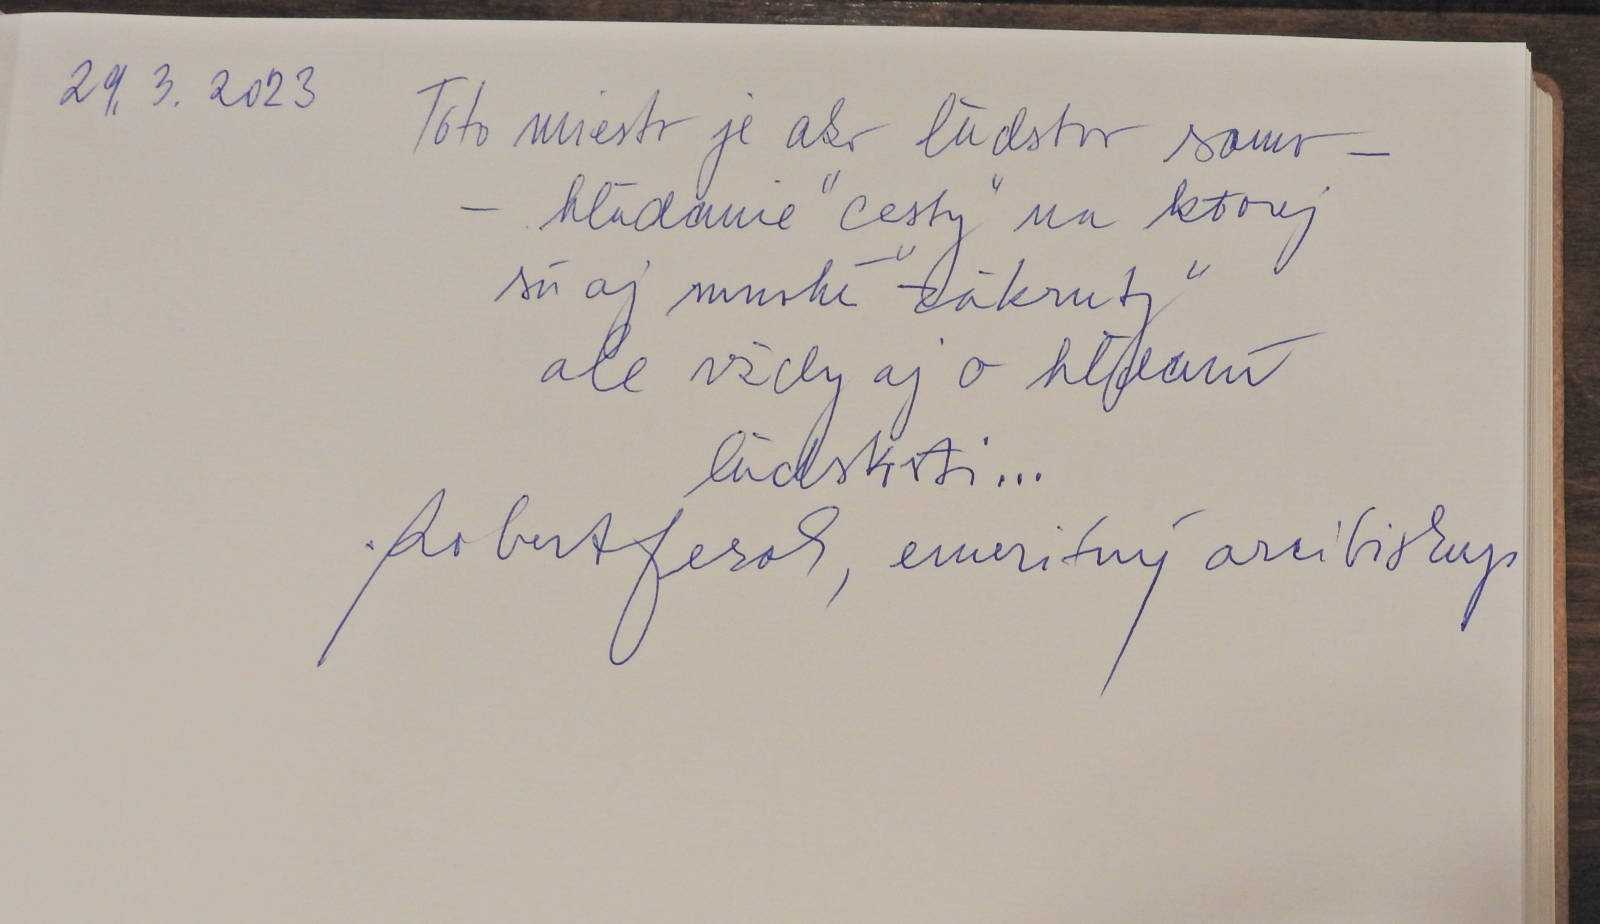 29. 3. 2023 Toto miesto je ako ľudstvo samo –
– hľadanie "cesty" na ktorej
sú aj mnohé "zákruty"
ale vždy aj o hľadaní
ľudskosti...
Robert Bezák, emeritný arcibiskup